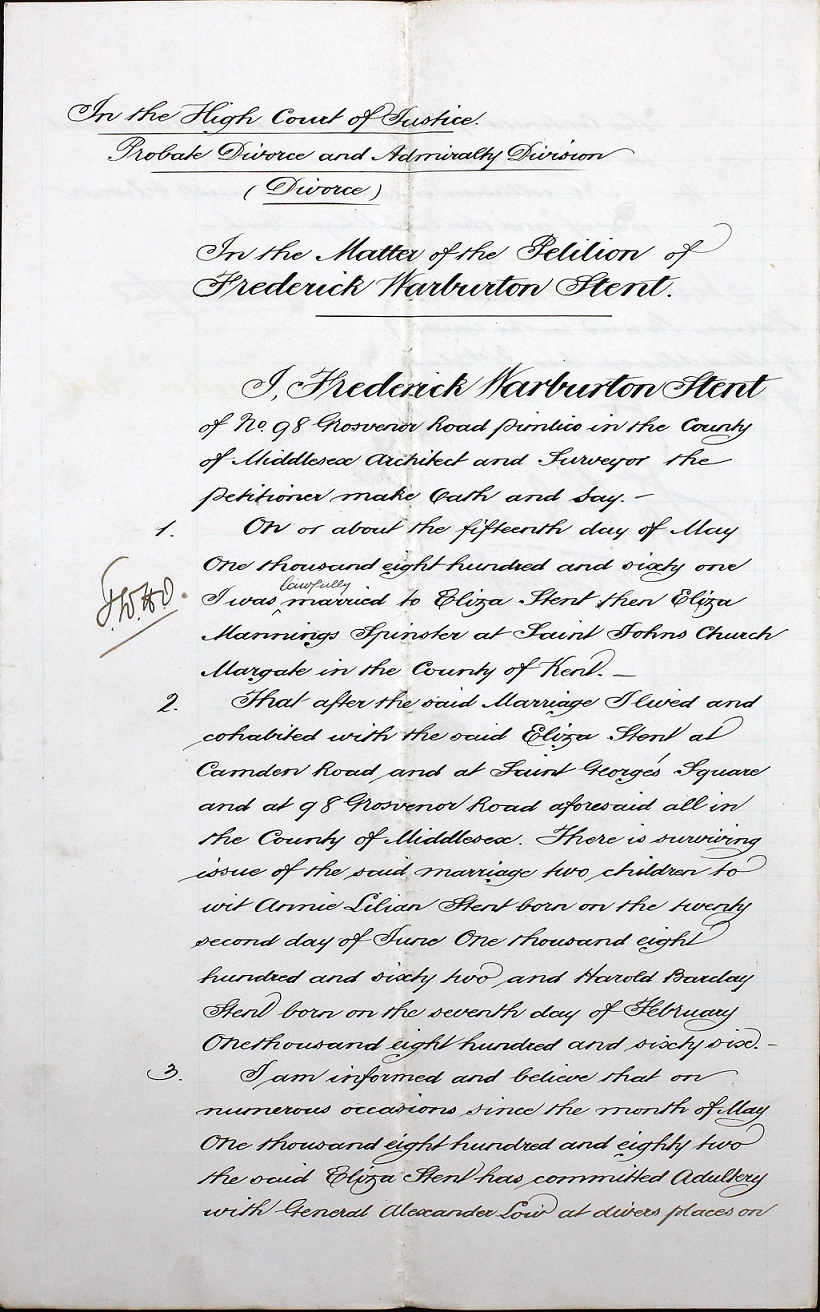 In the High Court of Justice.
Probate Divorce and Admiralty Division
(Divorce)
In the Matter of the Petition of
Frederick Warburton Stent.
I, Frederick Warburton Stent
of No. 98 Grosvenor Road pimlico in the County
of Middlesex Architect and Surveyor the
petitioner make Oath and Say. –
1. On or about the fifteenth day of May
One thousand eight hundred and sixty one
lawfully
I was married to Eliza Stent then Eliza
Mannings Spinster at Saint Johns Church
Margate in the County of Kent. –
2. That after the said Marriage I lived and
cohabited with the said Eliza Stent at
Camden Road and at Saint George's Square
and at 98 Grosvenor Road aforesaid all in
the County of Middlesex. There is surviving
issue of the said marriage two children to
wit Annie Lilian Stent born on the twenty
second day of June One thousand eight
hundred and sixty two and Harold Barclay
Stent born on the seventh day of February
One thousand eight hundred and sixty six. –
3. I am informed and believe that on
numerous occasions since the month of May
One thousand eight hundred and eighty two
the said Eliza Stent has committed Adultery
with General Alexander Low at divers places on